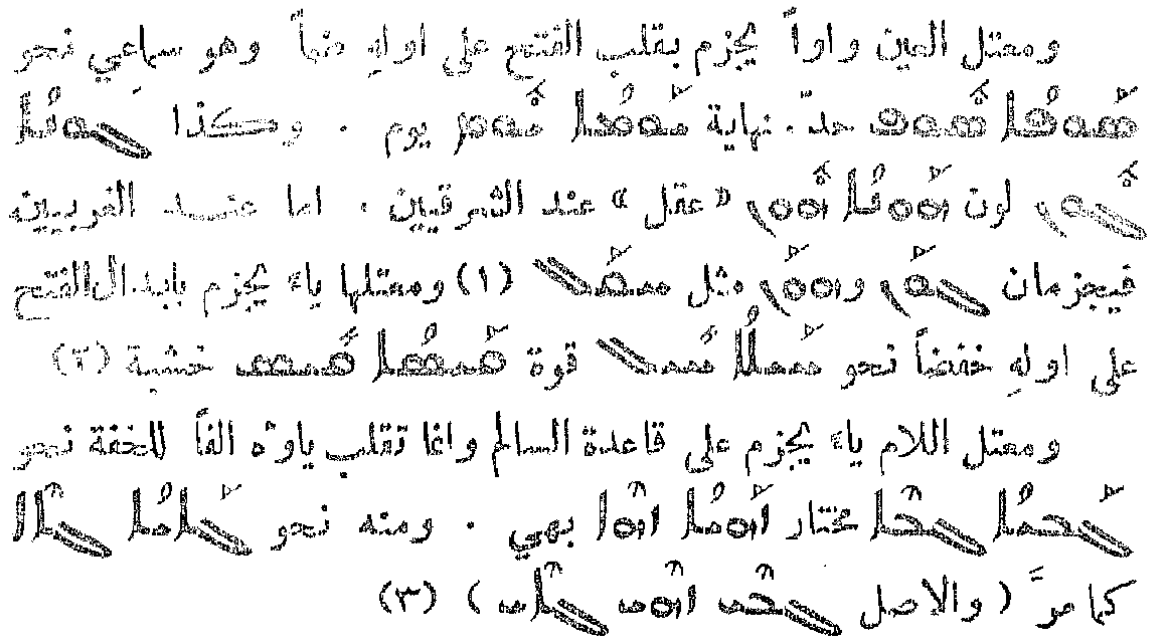 ومعتل العين واواً يجزم بقلب الفتح على اولهِ ضماً وهو سماعي نحو
ܣܰܘܦܳܐ ܣܽܘܦ حدّ. نهاية ܝܰܘܡܳܐ ܝܽܘܡ يوم . وكذا ܓܰܘܢܳܐ
ܓܽܘܢ لون ܗܰܘܢܳܐ ܗܽܘܢ «عقل» عند الشرقيين . اما عند الغربيين
فيجزمان ܓܰܘܢ وܗܰܘܢ مثل ܚܩܰܠ (١) ومعتلها ياءً يجزم بابدال الفتح
على اولهِ خفضاً نحو ܚܰܝܠܳܐ ܚܺܝܠ قوة ܩܰܝܣܳܐ ܩܺܝܣ خشبة (٢)
ومعتل اللام ياءً يجزم على قاعدة السالم وانما تقلب ياوُه الفاً للخفة نحو
ܓܰܒܝܳܐ ܓܒܶܐ مختار ܙܰܗܝܳܐ ܙܗܶܐ بهي . ومنه نحو ܓܰܐܝܳܐ ܓܐܶܐ
كما مرَّ ( والاصل ܓܒܶܝ ܙܗܶܝ ܓܐܶܝ ) (٣)